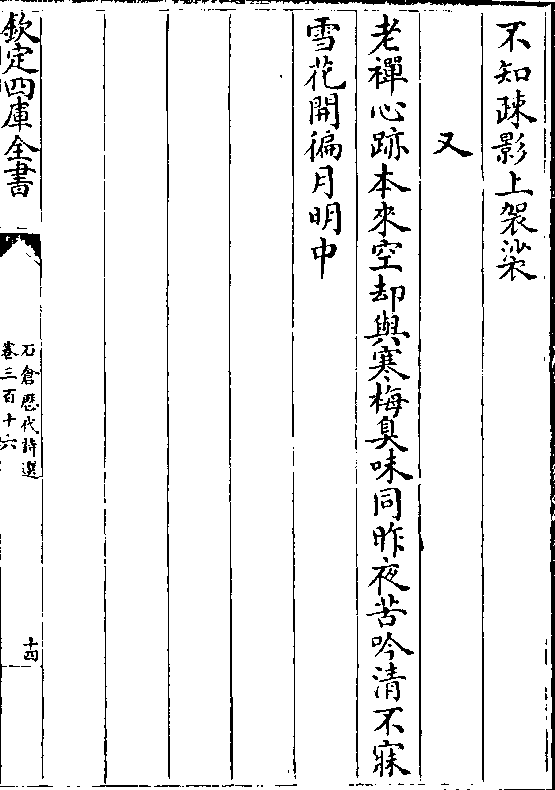 不知疎影上袈裟
又
老禪心跡本來空却與寒梅臭味同昨夜苦吟清不寐
雪花開徧月明中
欽定四庫全書
石倉歷代詩選
卷三百十六
十四